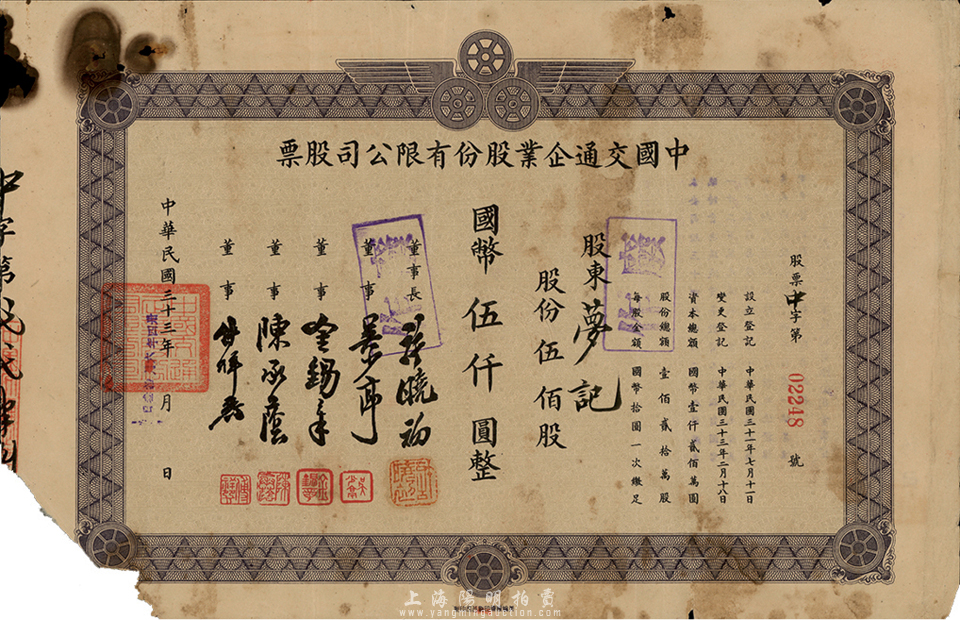 中國交通企業股份有限公司股票
股票中字第 02248 號
設立登記 中華民國三十一年七月十一日
變更登記 中華民國三十三年二月十八日
資本總額 國幣壹仟貳佰萬圓
股份總額 壹佰貳拾萬股
每股金額 國幣拾圓一次繳足
股東 夢記
股份伍佰股
國幣伍仟圓整
董事長 曉初
董事
董事 金錫章
董事 陳承蔭
董事
中華民國三十三年 月 日
中字第
上海陽明拍賣
www.yangmingauction.com